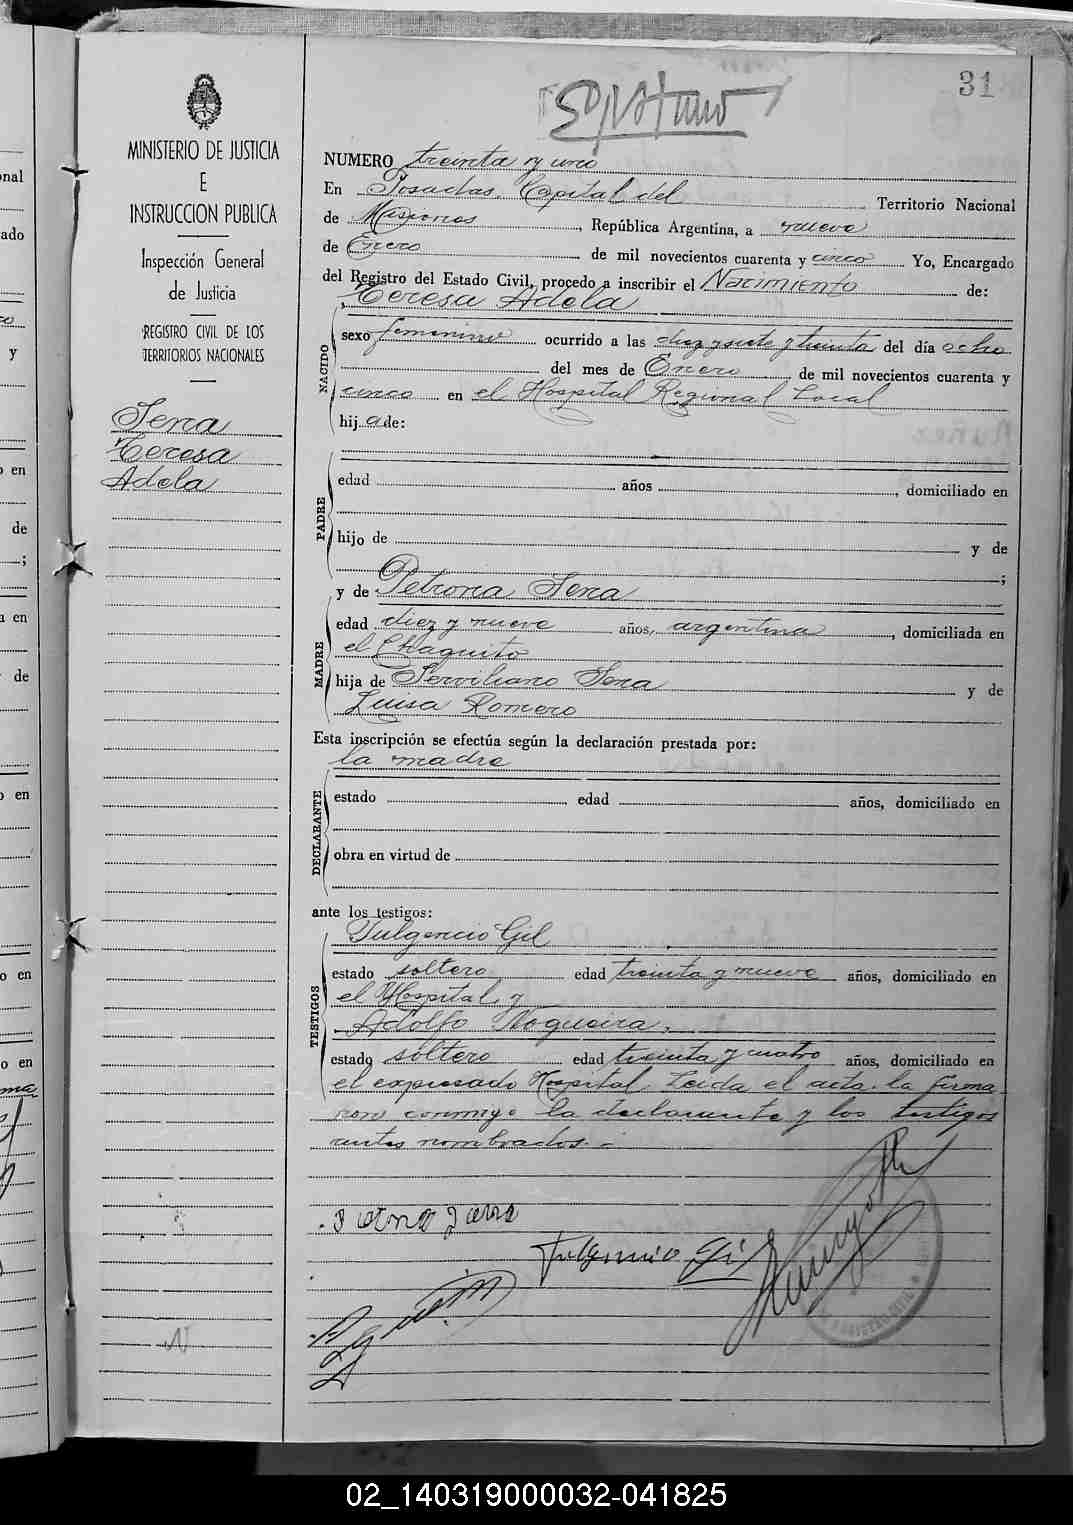 31
MINISTERIO DE JUSTICIA
E
INSTRUCCION PUBLICA
Inspección General
de Justicia
REGISTRO CIVIL DE LOS
TERRITORIOS NACIONALES
Sena
Teresa
Adela
NUMERO treinta y uno
En Posadas, Capital del Territorio Nacional
de Misiones, República Argentina, a nueve
de Enero de mil novecientos cuarenta y cinco Yo, Encargado
del Registro del Estado Civil, procedo a inscribir el Nacimiento de:
Teresa Adela
NACIDO
sexo femenino ocurrido a las diez y siete y treinta del día ocho
del mes de Enero de mil novecientos cuarenta y
cinco en el Hospital Regional Local
hij a de:
PADRE
edad años, domiciliado en
hijo de y de
;
y de Petrona Sena
MADRE
edad diez y nueve años, argentina, domiciliada en
el Chaquito
hija de Serviliano Sena y de
Luisa Romero
Esta inscripción se efectúa según la declaración prestada por:
la madre
DECLARANTE
estado edad años, domiciliado en
obra en virtud de
ante los testigos:
Fulgencio Gil
TESTIGOS
estado soltero edad treinta y nueve años, domiciliado en
el Hospital y
Adolfo Nogueira,
estado soltero edad treinta y cuatro años, domiciliado en
el expresado Hospital. Leida el acta la firma
ron conmigo la declarante y los testigos
antes nombrados.-
Fulgencio Gil
02_140319000032-041825